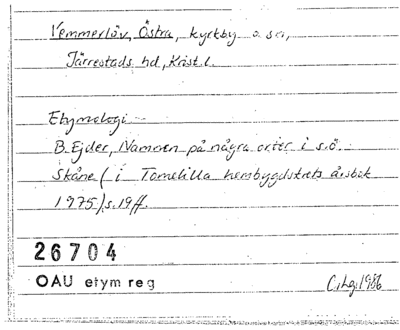 Vemmerlöv, Östra, kyrkby o. sn,
Järrestads hd, Krist. l.
Etymologi
B. Ejder, Namnen på några orter i s.ö.
Skåne (i Tomelilla hembygdskrets årsbok
1975) s. 19 ff.
26704
OAU etym reg
C.hg. 1986